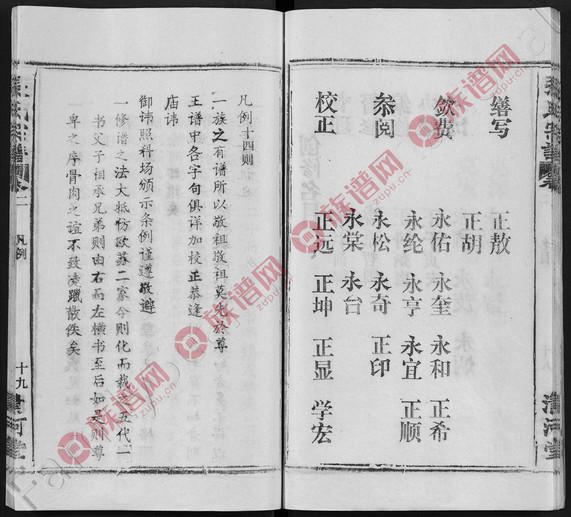 缮写
正敖
正胡
永佑 永奎 永和 正希
永纶 永亨 永宜 正顺
叅阅
永松 永奇 正印
永棠 永台
校正
正远 正坤 正显 学宏
清河堂
凡例十四则
一族谱之有谱所以敬祖敬祖莫先於尊
王谱中各字句俱详加校正恭逢
庙讳
御讳照科场颁示条例谨遵敬避
一修谱之法大抵仿欧苏二家今则化而裁之五代一
书父子祖承兄弟则由右而左横书至后如是则尊
卑之序骨肉之谊不致凌躐散佚矣
凡例
十九
清河堂
族谱网
zupu.cn